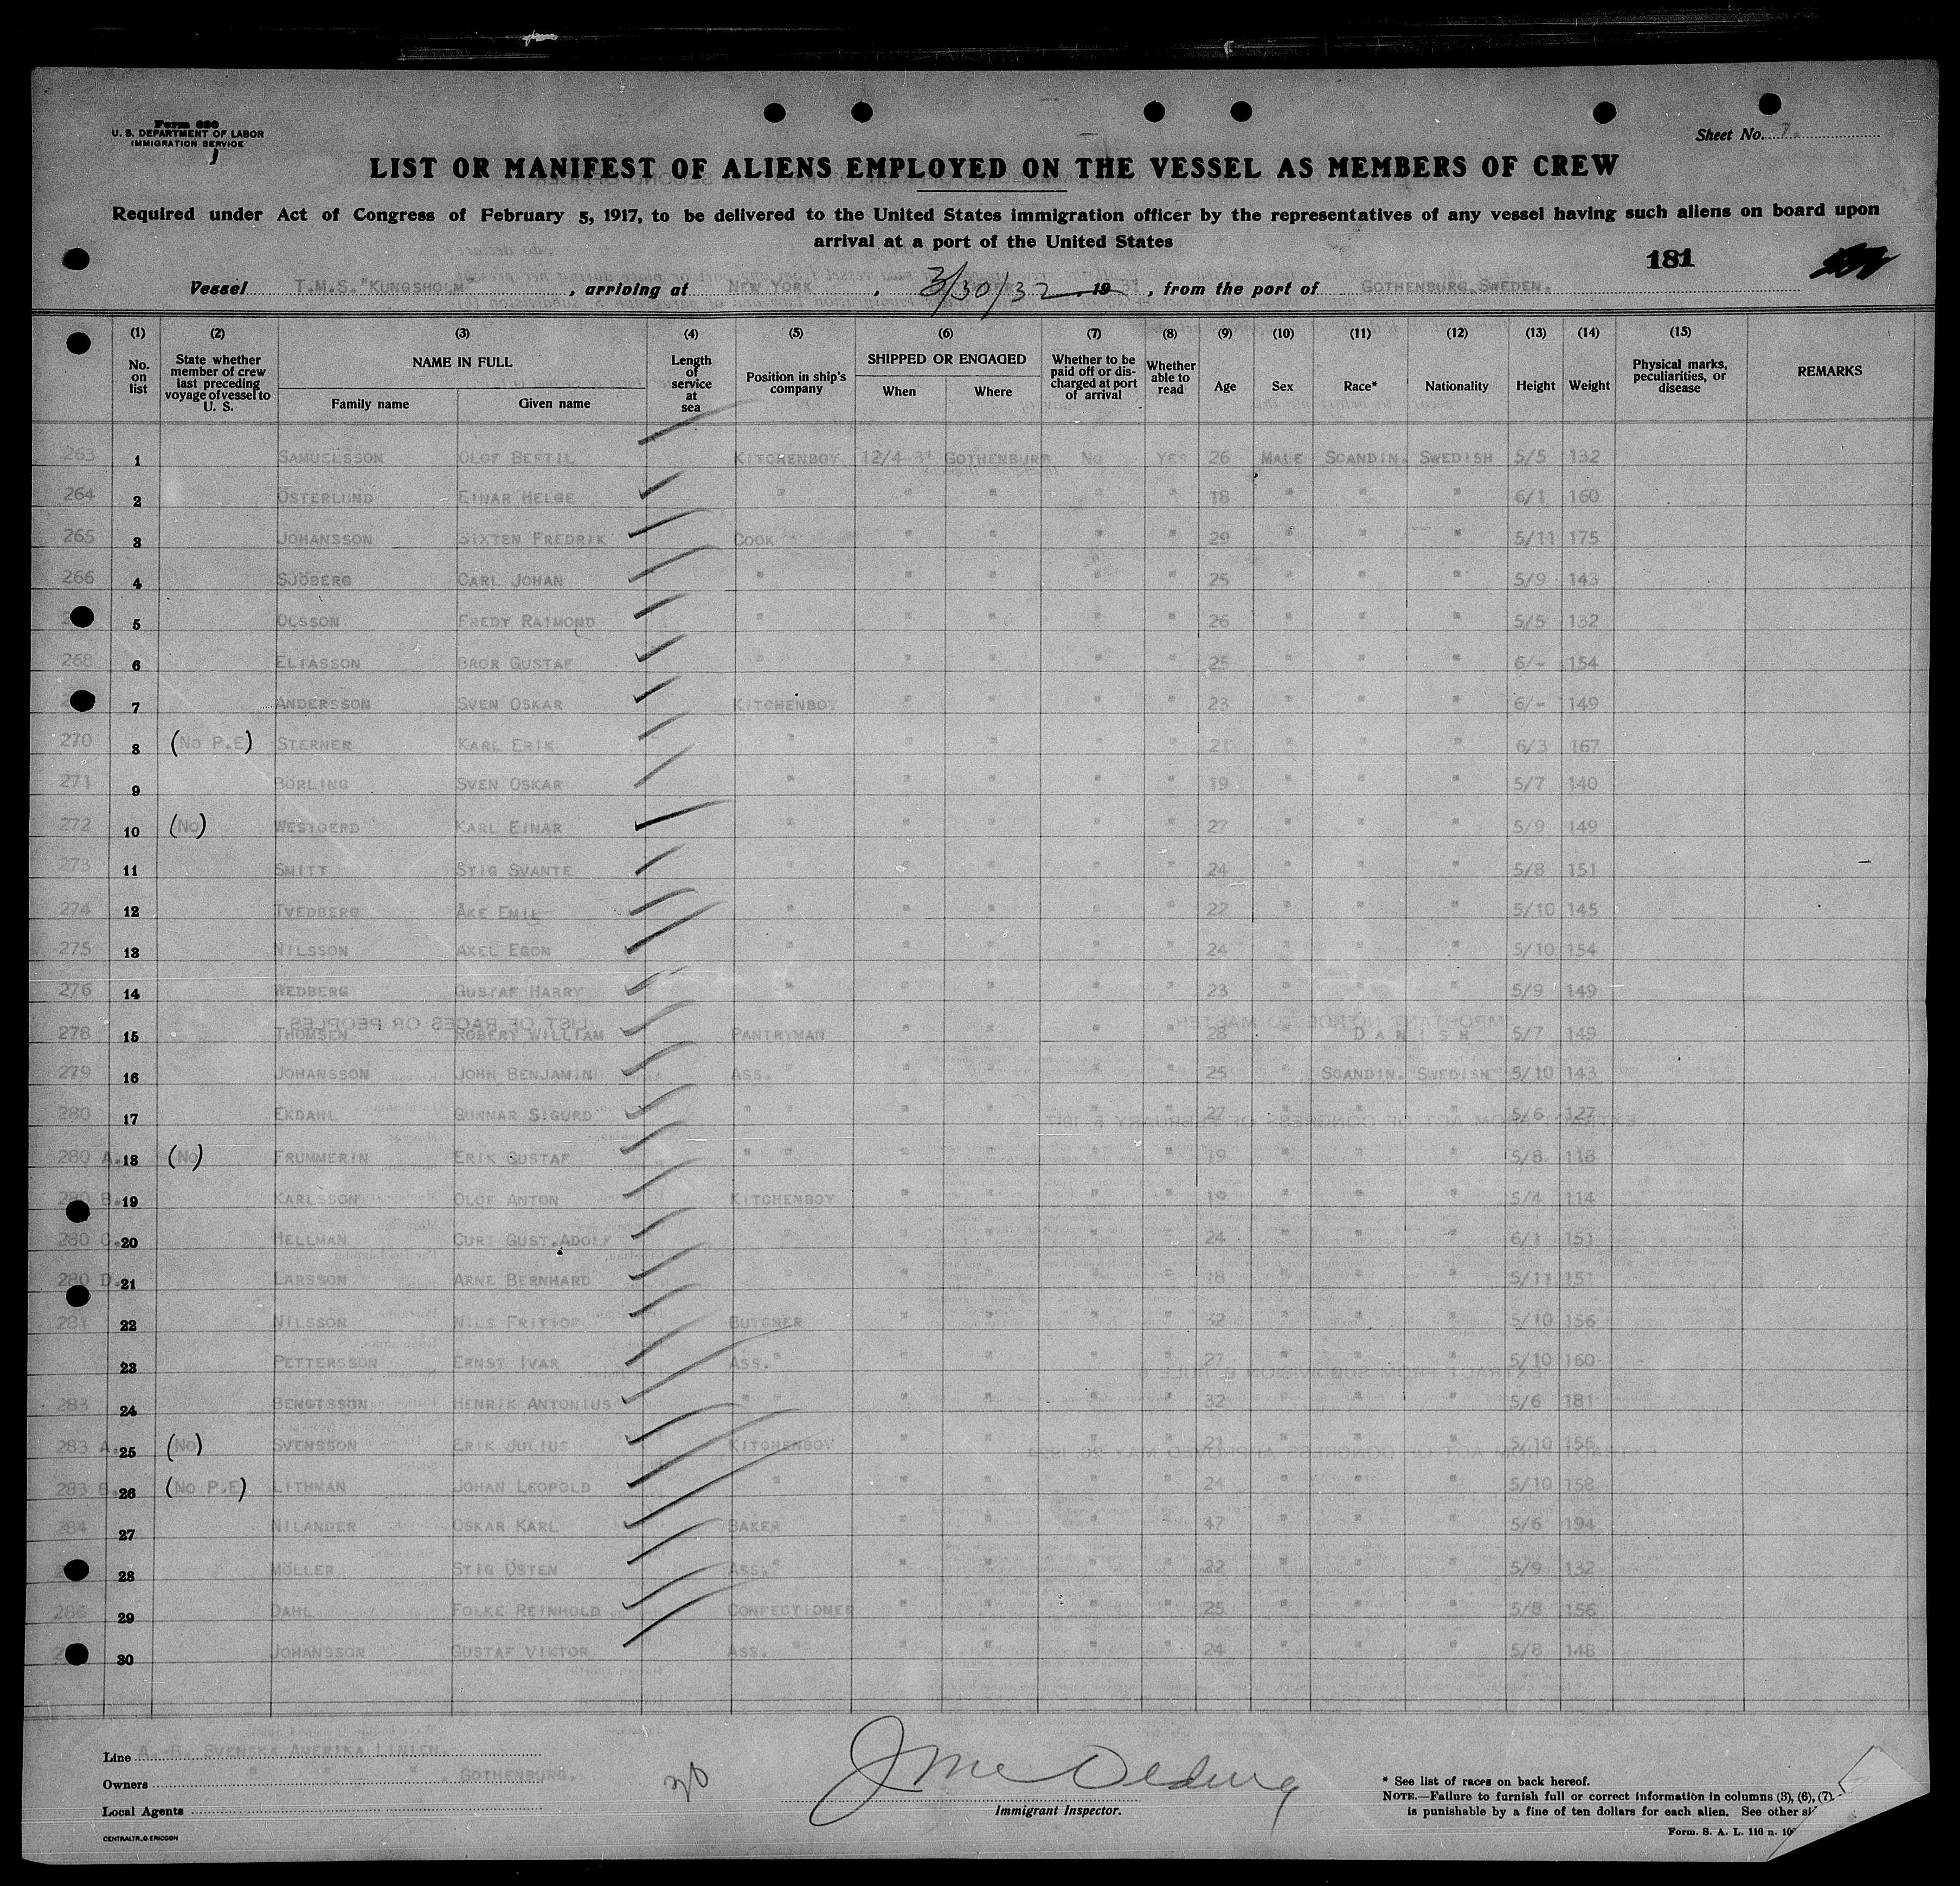 Form 680
U. S. DEPARTMENT OF LABOR
IMMIGRATION SERVICE
Sheet No. 7.
LIST OR MANIFEST OF ALIENS EMPLOYED ON THE VESSEL AS MEMBERS OF CREW
Required under Act of Congress of February 5, 1917, to be delivered to the United States immigration officer by the representatives of any vessel having such aliens on board upon
arrival at a port of the United States
181
Vessel T.M.S. "KUNGSHOLM", arriving at NEW YORK, 3/30/32 19 31, from the port of GOTHENBURG, SWEDEN.
(1) (2) (3) (4) (5) (6) (7) (8) (9) (10) (11) (12) (13) (14) (15)
No. on list | State whether member of crew last preceding voyage of vessel to U. S. | NAME IN FULL | Family name | Given name | Length of service at sea | Position in ship's company | SHIPPED OR ENGAGED | When | Where | Whether to be paid off or discharged at port of arrival | Whether able to read | Age | Sex | Race* | Nationality | Height | Weight | Physical marks, peculiarities, or disease | REMARKS
263 1 SAMUELSSON OLOF BERTIL KITCHENBOY 12/4 31 GOTHENBURG NO YES 26 MALE SCANDIN. SWEDISH 5/5 132
264 2 ÖSTERLUND EINAR HELGE " " " " " 18 " " " 6/1 160
265 3 JOHANSSON SIXTEN FREDRIK COOK " " " " 29 " " " 5/11 175
266 4 SJÖBERG CARL JOHAN " " " " " 25 " " " 5/9 143
5 OLSSON FREDY RAIMOND " " " " " 26 " " " 5/5 132
268 6 ELIASSON BROR GUSTAF " " " " " 25 " " " 6/- 154
7 ANDERSSON SVEN OSKAR KITCHENBOY " " " " 23 " " " 6/- 149
270 8 (NO P.E) STERNER KARL ERIK " " " " " 21 " " " 6/3 167
271 9 BÖRLING SVEN OSKAR " " " " " 19 " " " 5/7 140
272 10 (NO) WESTGERD KARL EINAR " " " " " 27 " " " 5/9 149
273 11 SMITT STIG SVANTE " " " " " 24 " " " 5/8 151
274 12 TVEDBERG ÅKE EMIL " " " " " 22 " " " 5/10 145
275 13 NILSSON AXEL EGON " " " " " 24 " " " 5/10 154
276 14 WEDBERG GUSTAF HARRY " " " " " 23 " " " 5/9 149
278 15 THOMSEN ROBERT WILLIAM PANTRYMAN " " " " 28 " DANISH 5/7 149
279 16 JOHANSSON JOHN BENJAMIN ASS. " " " " " 25 " SCANDIN. SWEDISH 5/10 143
280 17 EKDAHL GUNNAR SIGURD " " " " " " 27 " " " 5/6 127
280 A. 18 (NO) FRUMMERIN ERIK GUSTAF " " " " " " 19 " " " 5/8 118
280 B. 19 KARLSSON OLOF ANTON KITCHENBOY " " " " 19 " " " 5/4 114
280 C. 20 HELLMAN CURT GUST.ADOLF " " " " " 24 " " " 6/1 151
280 D. 21 LARSSON ARNE BERNHARD " " " " " 18 " " " 5/11 151
281 22 NILSSON NILS FRITIOF BUTCHER " " " " 32 " " " 5/10 156
23 PETTERSSON ERNST IVAR ASS. " " " " " 27 " " " 5/10 160
283 24 BENGTSSON HENRIK ANTONIUS " " " " " " 32 " " " 5/6 181
283 A. 25 (NO) SVENSSON ERIK JULIUS KITCHENBOY " " " " 21 " " " 5/10 156
283 B. 26 (NO P.E) LITHMAN JOHAN LEOPOLD " " " " " 24 " " " 5/10 158
284 27 NILANDER OSKAR KARL BAKER " " " " 47 " " " 5/6 194
28 MÖLLER STIG ÖSTEN ASS. " " " " " 22 " " " 5/9 132
286 29 DAHL FOLKE REINHOLD CONFECTIONER " " " " 25 " " " 5/8 156
30 JOHANSSON GUSTAF VIKTOR ASS. " " " " " 24 " " " 5/8 148
Line A. B. SVENSKA AMERIKA LINIEN.
Owners " " " , GOTHENBURG.
Local Agents
30
Immigrant Inspector.
* See list of races on back hereof.
NOTE.—Failure to furnish full or correct information in columns (3), (6), (7)
is punishable by a fine of ten dollars for each alien. See other
Form. S. A. L. 116 n.
CENTRALTR., G. ERICSON